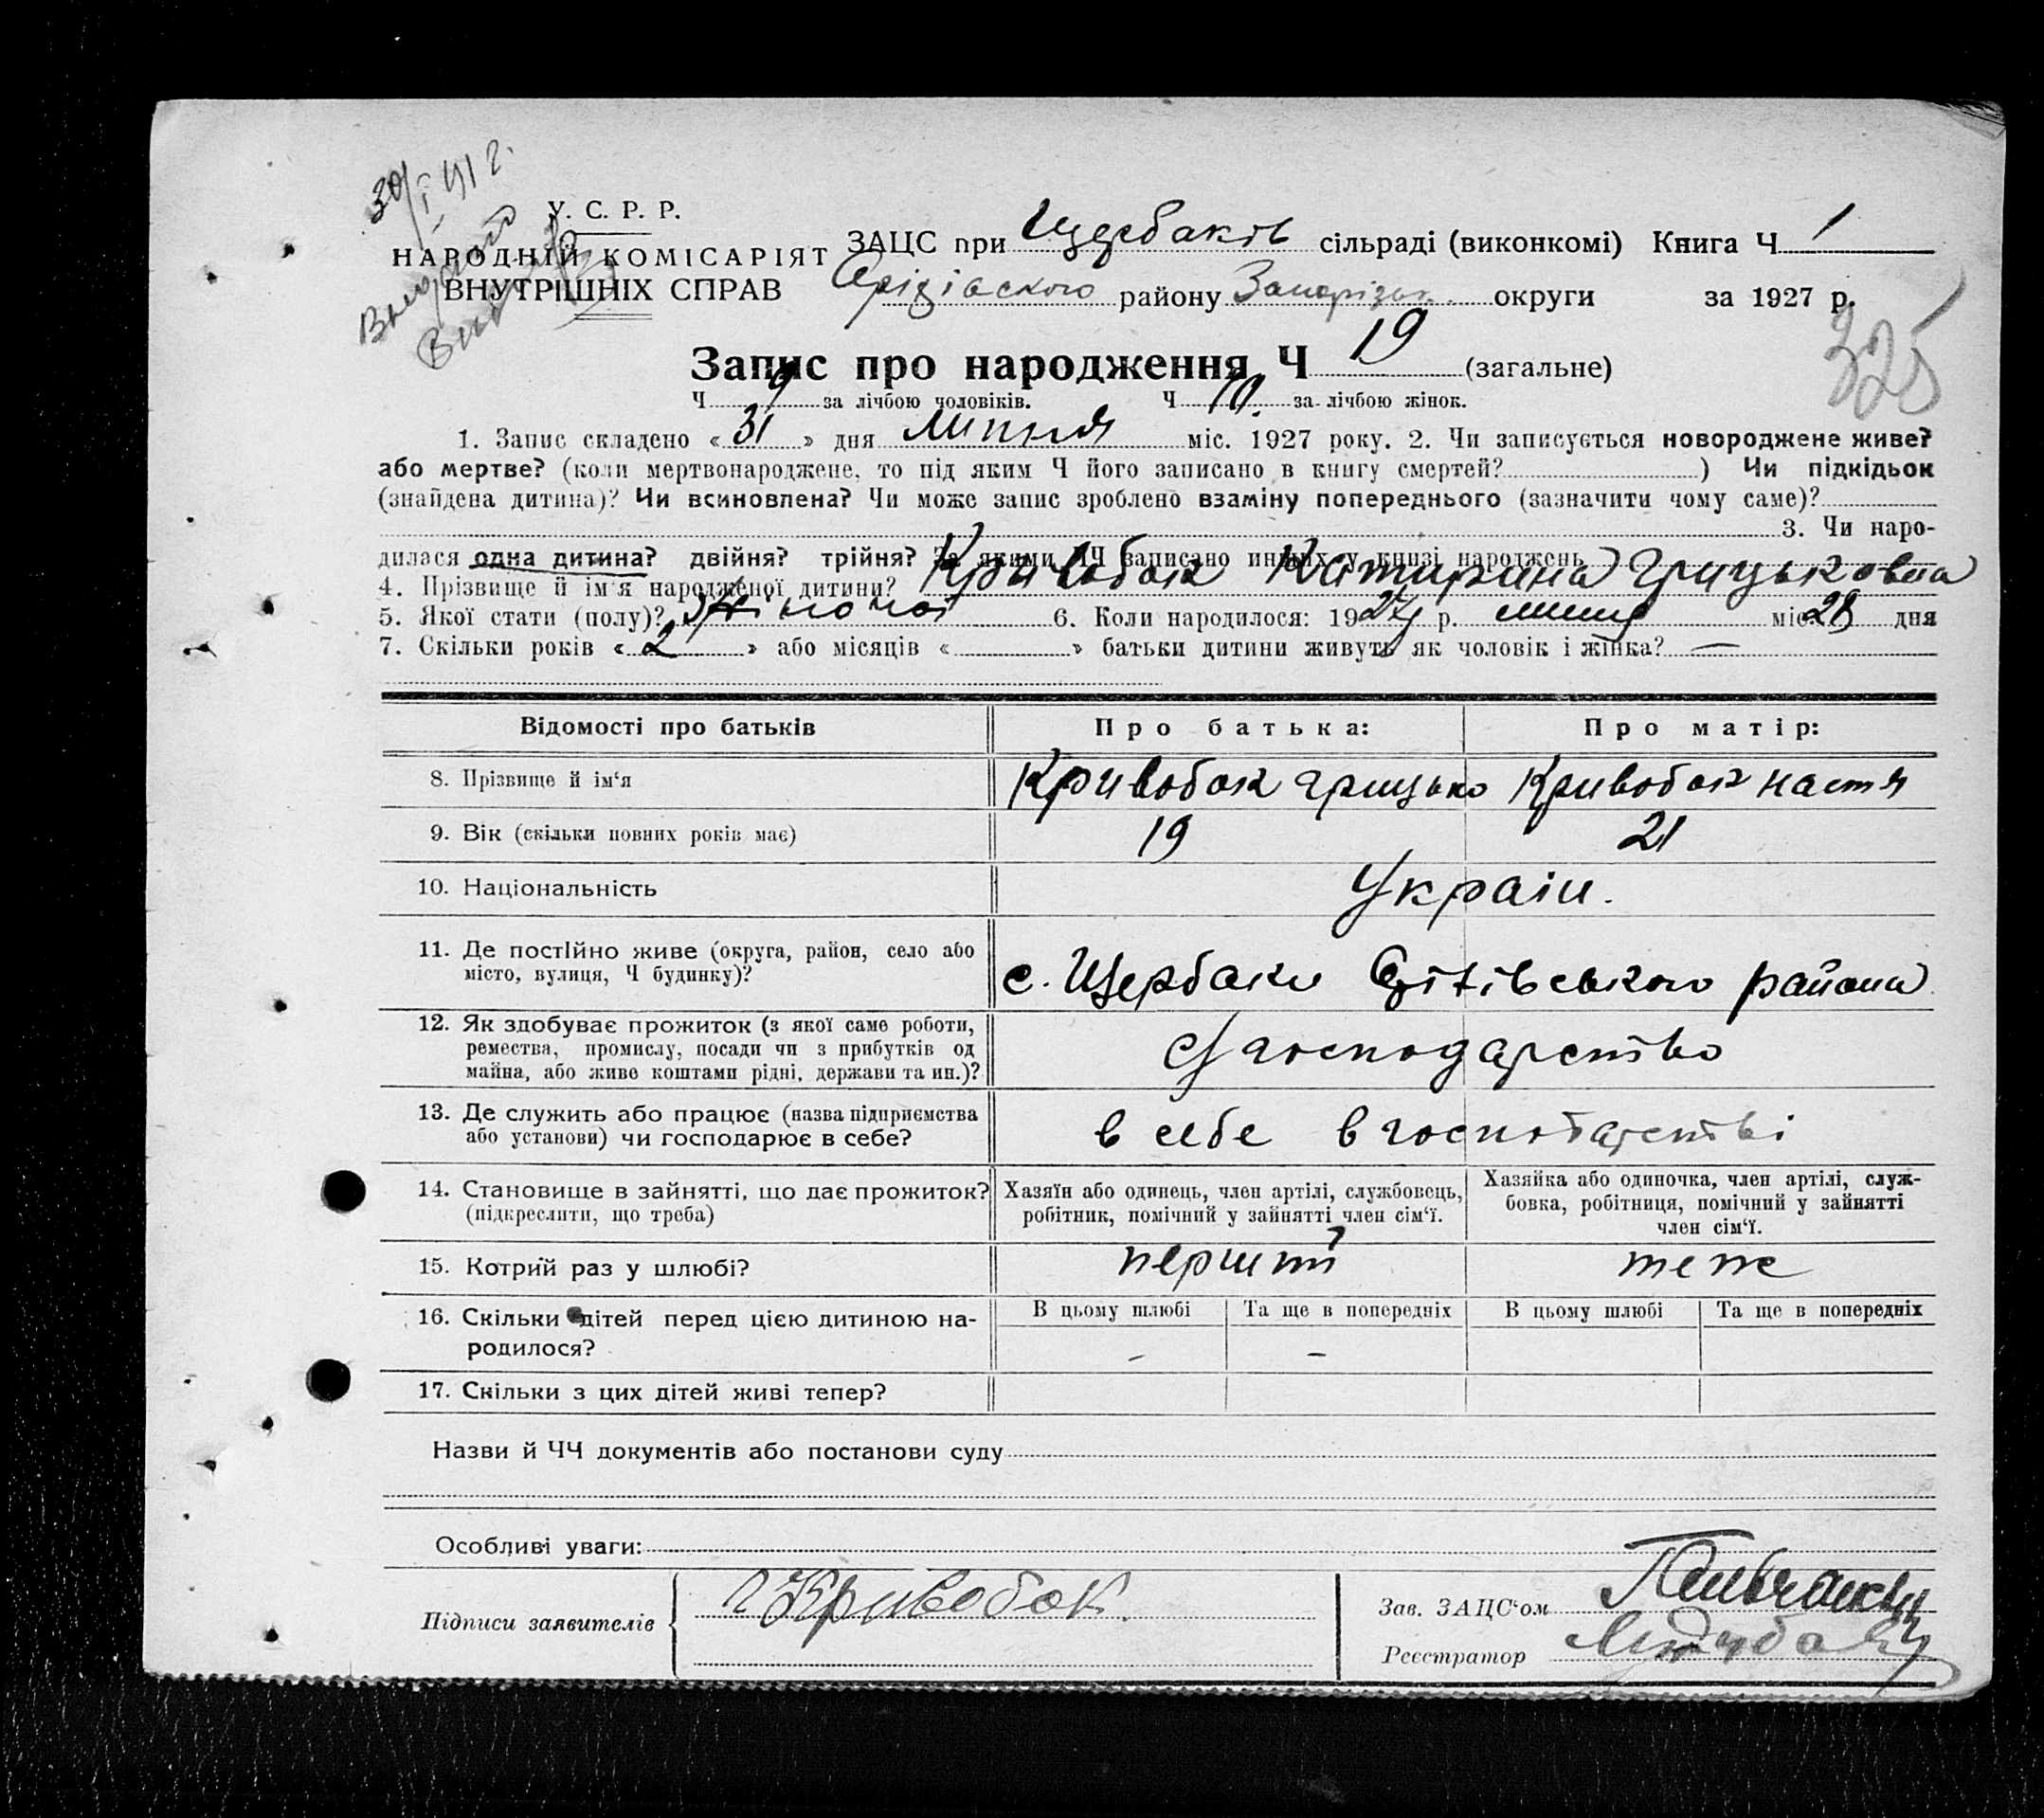 30/I 41 г.
У. С. Р. Р.
НАРОДНІЙ КОМІСАРІЯТ
ВНУТРІШНІХ СПРАВ
ЗАЦС при Щербаків сільраді (виконкомі) Книга Ч 1
району Запорізьк. округи за 1927 р.
325
Запис про народження Ч 19 (загальне)
Ч 9 за лічбою чоловіків. Ч 10. за лічбою жінок.
1. Запис складено «31» дня липня міс. 1927 року. 2. Чи записується новороджене живе?
або мертве? (коли мертвонароджене, то під яким Ч його записано в книгу смертей? ) Чи підкідьок
(знайдена дитина)? Чи всиновлена? Чи може запис зроблено взаміну попереднього (зазначити чому саме)?
3. Чи наро-
дилася одна дитина? двійня? трійня? За якими ЧЧ записано инших у книзі народжень
4. Прізвище й ім'я народженої дитини? Кривобок Катирина Грицьковна
5. Якої стати (полу)? Жіночої 6. Коли народилося: 1927 р. липня міс. 28 дня
7. Скільки років «2» або місяців « » батьки дитини живуть як чоловік і жінка? —
Відомості про батьків Про батька: Про матір:
8. Прізвище й ім'я Кривобок Грицько Кривобок Настя
9. Вік (скільки повних років має) 19 21
10. Національність Україн.
11. Де постійно живе (округа, район, село або
місто, вулиця, Ч будинку)? с. Щербаки Оріхівського района
12. Як здобуває прожиток (з якої саме роботи,
ремества, промислу, посади чи з прибутків од
майна, або живе коштами рідні, держави та ин.)? господарство
13. Де служить або працює (назва підприємства
або установи) чи господарює в себе? в себе в господарстві
14. Становище в зайнятті, що дає прожиток?
(підкреслити, що треба)
Хазяїн або одинець, член артілі, службовець,
робітник, помічний у зайнятті член сім'ї.
Хазяйка або одиночка, член артілі, служ-
бовка, робітниця, помічний у зайнятті
член сім'ї.
15. Котрий раз у шлюбі? перший теж
16. Скільки дітей перед цією дитиною на-
родилося?
В цьому шлюбі Та ще в попередніх В цьому шлюбі Та ще в попередніх
– –
17. Скільки з цих дітей живі тепер?
Назви й ЧЧ документів або постанови суду
Особливі уваги:
Підписи заявителів Г Кривобок.
Зав. ЗАЦС'ом
Реєстратор